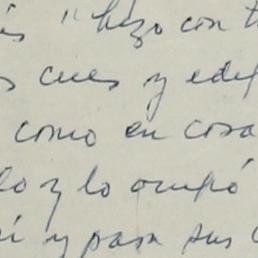 "hizo con
cues y
como en cosa
y lo ocupó
y para sus